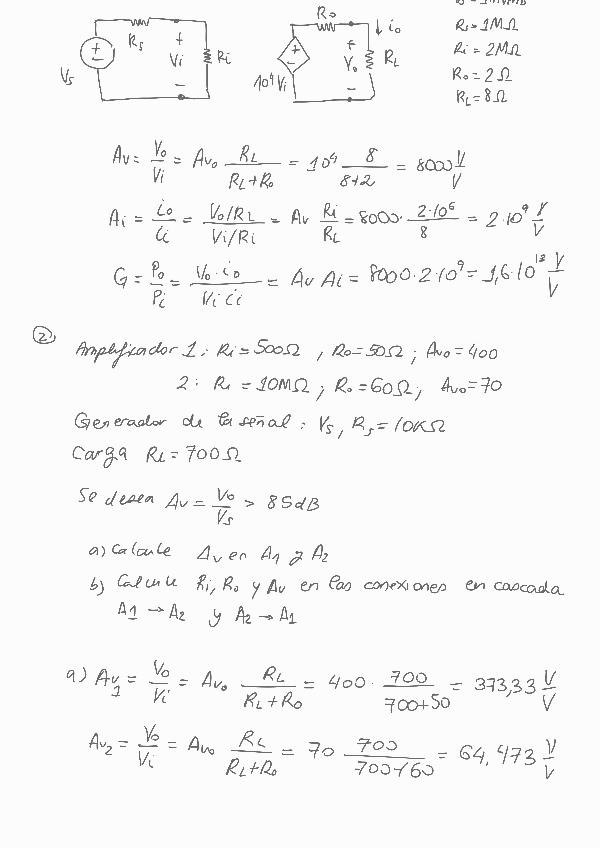 Rs = 1MΩ
Ri = 2MΩ
Ro = 2Ω
RL = 8Ω
Vs Rs + Vi - Ri 10⁴Vi Ro + Vo - io RL
Av = Vo/Vi = Avo RL/(RL+Ro) = 10⁴ 8/(8+2) = 8000 V/V
Ai = io/ii = (Vo/RL)/(Vi/Ri) = Av Ri/RL = 8000 · 2·10⁶/8 = 2·10⁹ V/V
G = Po/Pi = Vo·io/Vi ii = Av Ai = 8000·2·10⁹ = 1,6·10¹³ V/V
②
Amplificador 1: Ri = 500Ω, Ro = 50Ω; Avo = 400
2: Ri = 10MΩ; Ro = 60Ω; Avo = 70
Generador de la señal: Vs, Rs = 10KΩ
Carga RL = 700Ω
Se desea Av = Vo/Vs > 85dB
a) Calcule Av en A1 y A2
b) Calcule Ri, Ro y Av en las conexiones en cascada
A1 → A2 y A2 → A1
a) Av1 = Vo/Vi = Avo RL/(RL+Ro) = 400 · 700/(700+50) = 373,33 V/V
Av2 = Vo/Vi = Avo RL/(RL+Ro) = 70 700/(700+60) = 64,473 V/V